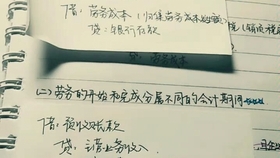 借：劳务成本（归集劳务成本的金额）
贷：银行存款
劳务成本
(二)劳务的开始和完成分属不同的会计期间
借：预收账款
贷：主营业务收入